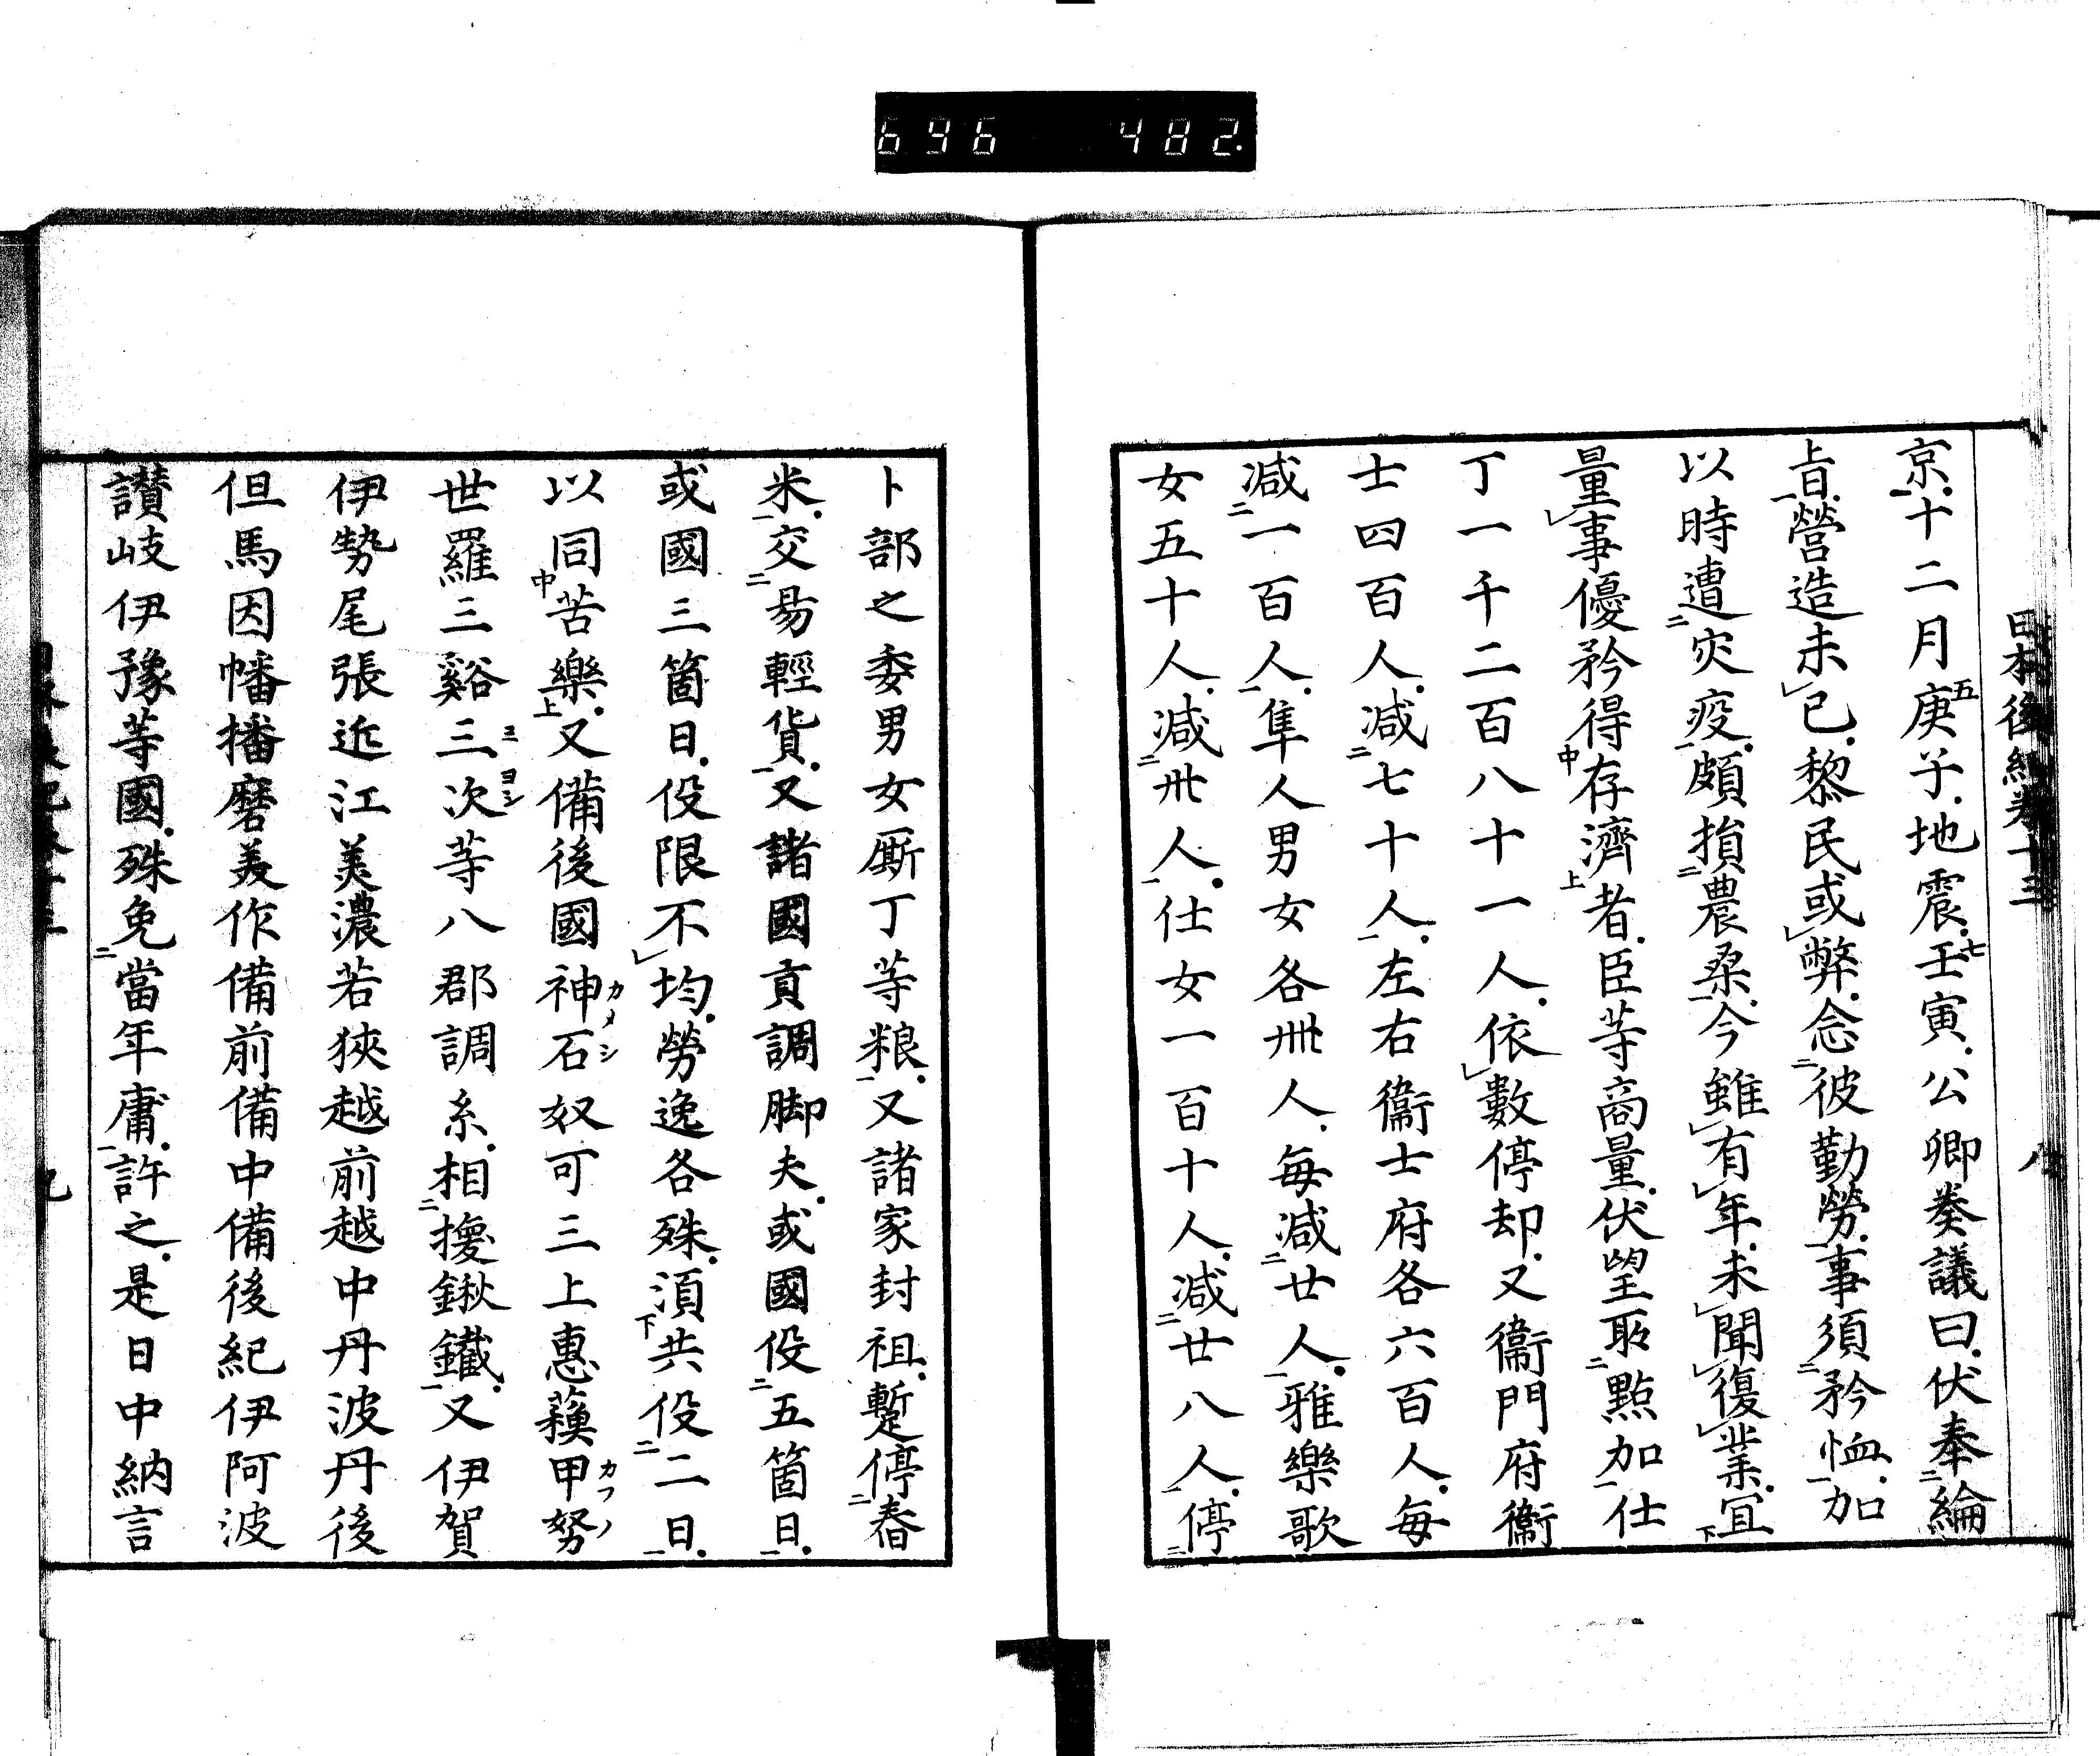 696 482.
日本後紀卷十三 八
京十二月庚子五地震壬寅七公卿奏議曰伏奉綸
旨營造未已黎民或弊念彼勤勞事須矜恤加
以時遭灾疫頗損農桑今雖有年未聞復業宜
量事優矜得存濟者臣等商量伏望取點加仕
丁一千二百八十一人依數停却又衞門府衞
士四百人減七十人左右衞士府各六百人每
減一百人隼人男女各卌人每減廿人雅樂歌
女五十人減卅人仕女一百十人減廿八人停
卜部之委男女厮丁等粮又諸家封祖蹔停舂
米交易輕貨又諸國貢調脚夫或國役五箇日
或國三箇日役限不均勞逸各殊須共役二日
以同苦樂又備後國神石奴可三上惠蘓甲努
世羅三谿三次等八郡調糸相換鍬鐵又伊賀
伊勢尾張近江美濃若狹越前越中丹波丹後
但馬因幡播磨美作備前備中備後紀伊阿波
讃岐伊豫等國殊免當年庸許之是日中納言